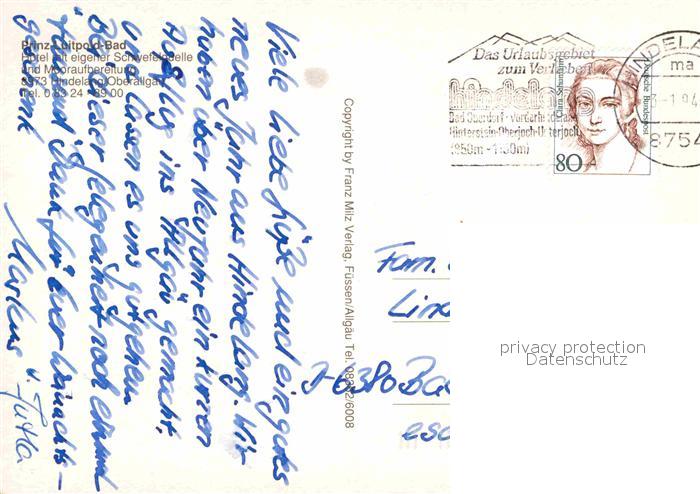 Prinz-Luitpold-Bad
Hotel mit eigener Schwefelquelle
und Mooraufbereitung
8973 Hindelang/Oberallgäu
Tel. 0 83 24
Viele liebe Grüße und ein gutes
neues Jahr aus Hindelang. Wir
haben über Neujahr ein kurzen
Ausflug ins Allgäu gemacht
und lassen es uns gutgehen.
Bei dieser Gelegenheit noch einmal
vielen Dank für Euer Weihnachts-
geschenk
Markus u. Jutta
Copyright by Franz Milz Verlag, Füssen/Allgäu Tel. 08362/6008
Das Urlaubsgebiet
zum Verlieben!
Bad Oberdorf - Vorderhindelang
Hinterstein-Oberjoch-Unterjoch
Clara Schumann
Deutsche Bundespost
80
HINDELA
ma
1.94
8754
Fam.
Lin
D-6380 Ba
esc
privacy protection
Datenschutz